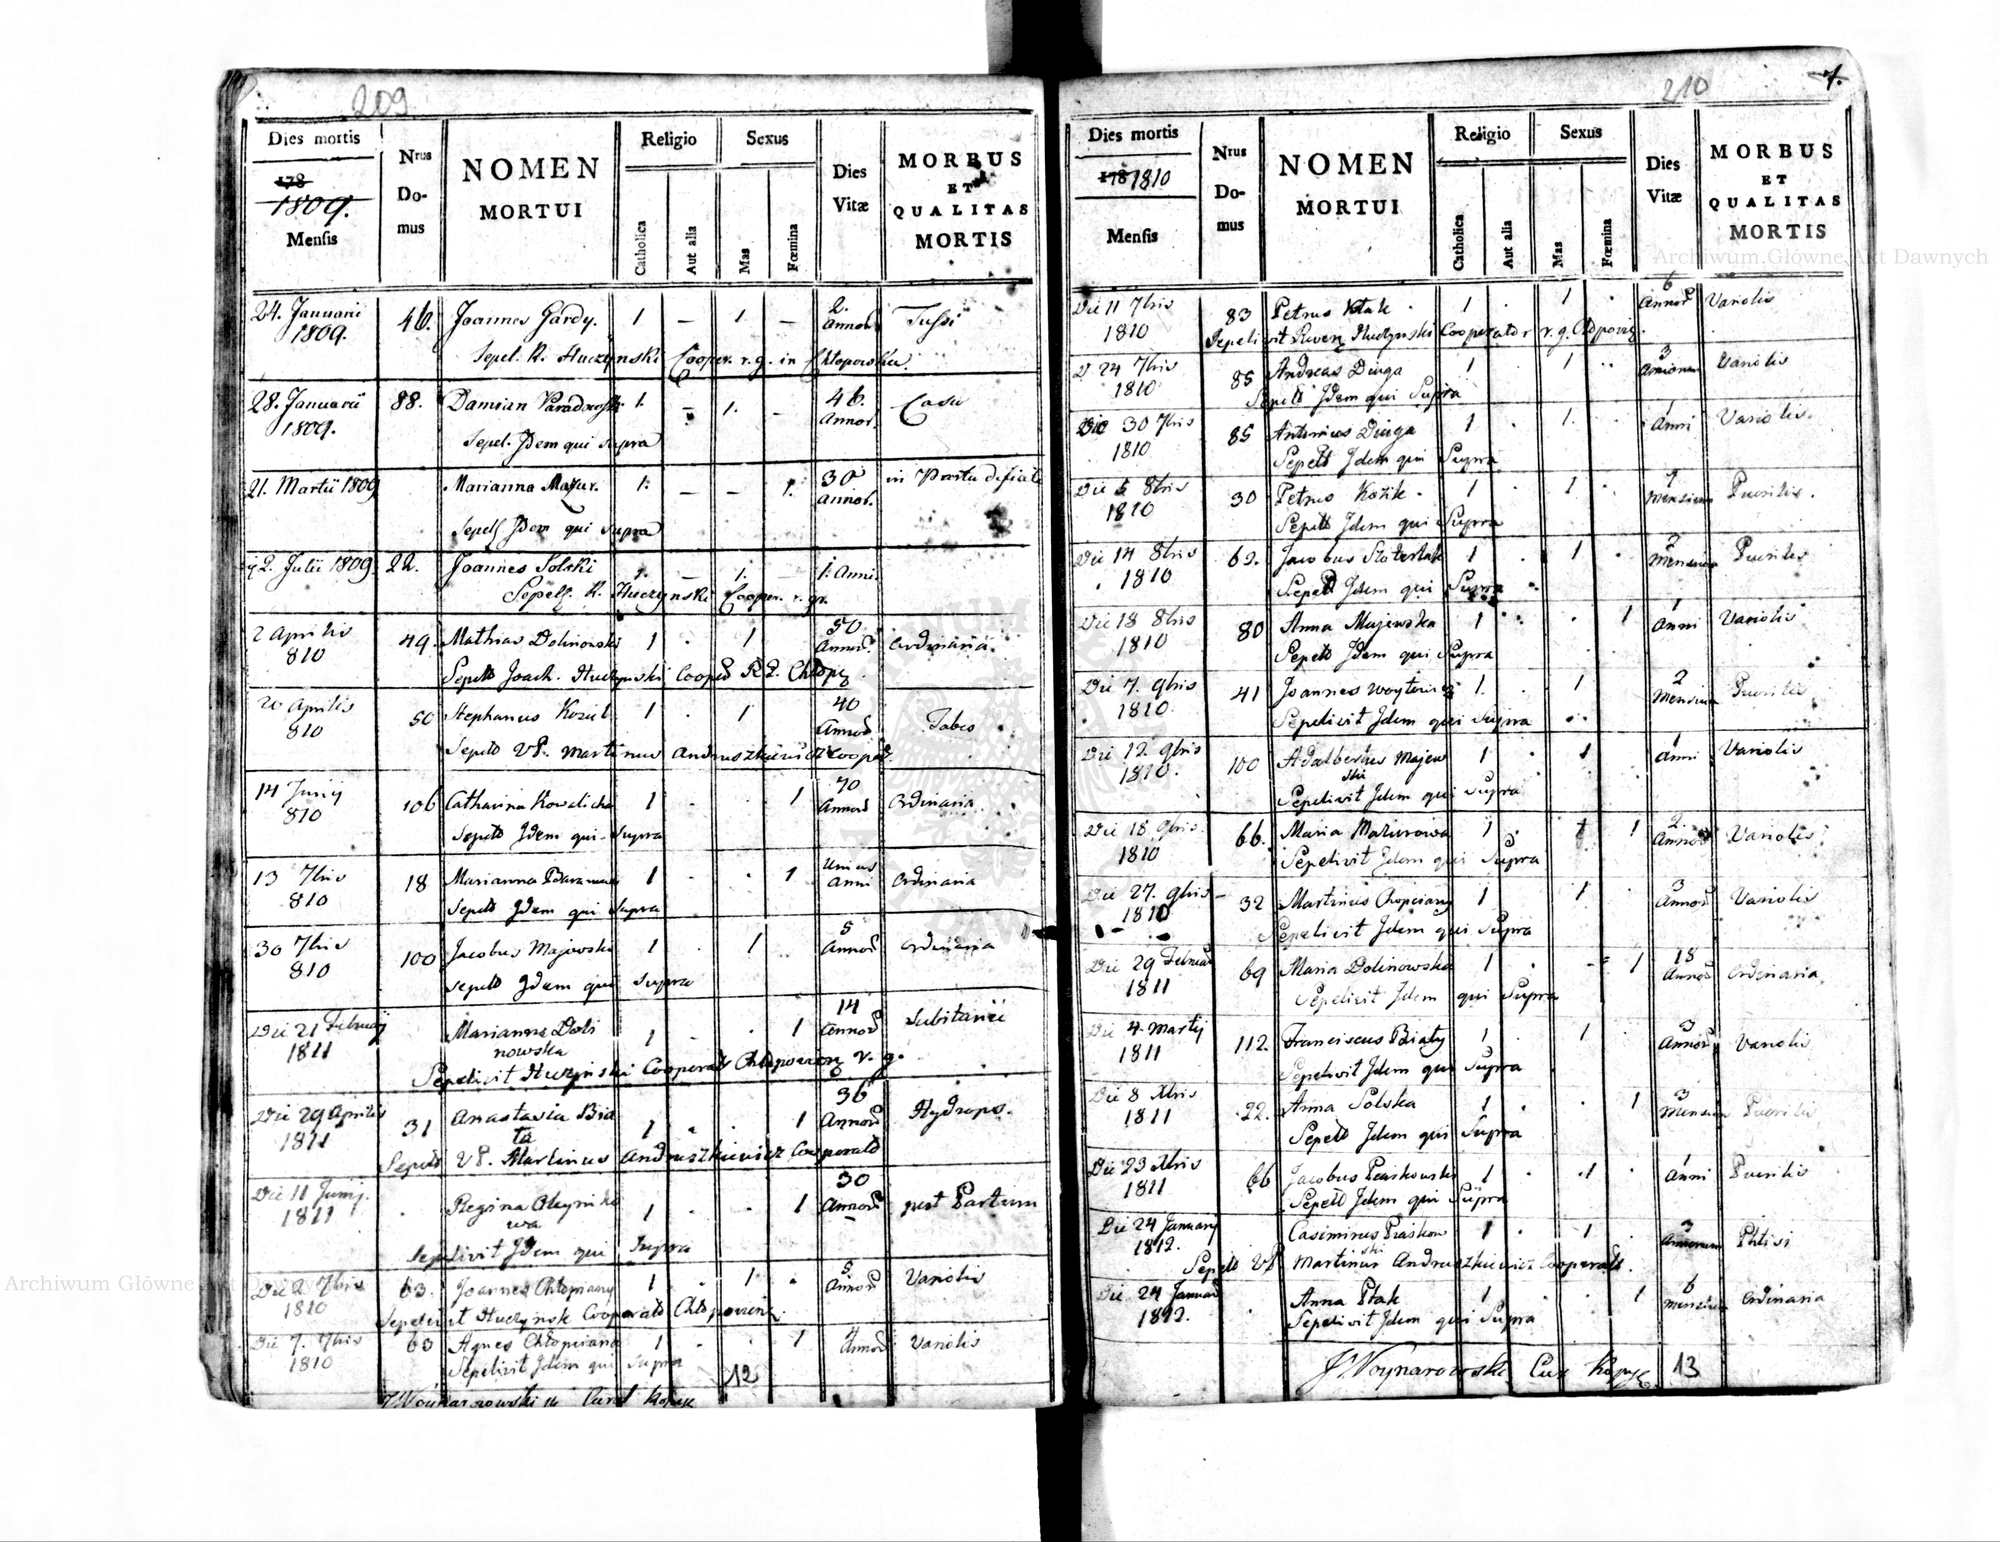 209
Dies mortis
178
1809.
Mensis
Nrus Domus
NOMEN
MORTUI
Religio
Catholica
Aut alia
Sexus
Mas
Fœmina
Dies Vitæ
MORBUS
ET
QUALITAS
MORTIS
24. Januarii 46. Joannes Gardy. 1 — 1. — 2. Tussi
1809. Annor.
Sepel. R. Huczynski Cooper. r. g. in
28. Januarii 88. Damian 1. — 1. — 46. Casu
1809. Annor.
Sepel. Idem qui supra
21. Martii 1809 Marianna Mazur. 1. — — 1. 30 in Partu
Annor.
Sepel. Idem qui supra
2. Julii 1809. 22. Joannes Solski 1. — 1. — 1. Anni
Sepel. R. Huczynski Cooper. r. gr.
2 Aprilis 49. Mathias Dolinowski 1 . 1 50 Ordinaria.
810 Annor.
Sepelt Joach. Huczynski
20 Aprilis 50 Stephanus Koziel 1 . 1 40 Tabes
810 Annor
Sepelt VP. Martinus Andruszkiewicz Cooper.
14 Junij 106 Catharina Kowalicha 1 . . 1 70 Ordinaria
810 Annor
Sepelt Idem qui Supra
13 7bris 18 Marianna 1 . . 1 Unius Ordinaria
810 Anni
Sepelt Idem qui Supra
30 7bris 100 Jacobus Majewski 1 . 1 5 Ordinaria
810 Annor
Sepelt Idem qui Supra
Die 21 Februarij Marianna Doli 1 . . 1 14
1811 nowska Annor
Sepelivit Huczynski
Die 29 Aprilis 31 Anastasia Bia 1 . . 1 36 Hydrops.
1811 ła Annor
Sepelt VP. Martinus Andruszkiewicz
Die 11 Junij. Regina 1 . . 1 30 post Partum
1811 Annor
Sepelivit Idem qui Supra
Die 2 7bris 63. Joannes Chłopiany 1 . 1 . 5 Variolis
1810 Annor
Sepelivit Huczynsk
Die 7. 7bris 63 Agnes 1 . . 1 Variolis
1810 Annor
Sepelivit Idem qui Supra
12
210
7.
Dies mortis
178 1810
Mensis
Nrus Domus
NOMEN
MORTUI
Religio
Catholica
Aut alia
Sexus
Mas
Fœmina
Dies Vitæ
MORBUS
ET
QUALITAS
MORTIS
Die 11 7bris 83 Petrus Ptak 1 . 1 . 6 Variolis
1810 Annor
Huczynski Cooperator r. g.
D 24 7bris 85 Andreas Dziga 1 1 3 Variolis
1810 Annorum
Sepelt Idem qui Supra
Die 30 7bris 85 Antonius Dziga 1 . 1. . 1 Variolis.
1810 Anni
Sepelt Idem qui Supra
Die 8bris 30 Petrus Kozik 1 1 Puerilis.
1810 Mensium
Sepelt Idem qui Supra
Die 14 8bris 62. Jacobus 1 . 1 . 2 Puerilis
1810 Mensium
Sepelt Idem qui Supra
Die 18 8bris 80 Anna Majewska 1 . . 1 1 Variolis
1810 Anni
Sepelt Idem qui Supra
Die 7. 9bris 41 Joannes 1. . 1 2 Puerilis
1810 Mensium
Sepelivit Idem qui Supra
Die 12. 9bris 100 Adalbertus Majew 1 . 1 1 Variolis
1810. ski Anni
Sepelivit Idem qui Supra
Die 18 9bris. 66. Maria Mazurowa 1 . 1 2. Variolis
1810 Annor
Sepelivit Idem qui Supra
Die 27. 9bris 32 Martinus 1 1 3 Variolis
1810 Annor
Sepelivit Idem qui Supra
Die 29 Februar 69 Maria Dolinowska 1 . 1 18 Ordinaria
1811 Annor
Sepelivit Idem qui Supra
Die 4. Martij 112. Franciscus Biały 1 . 1 3 Variolis
1811 Annor
Sepelivit Idem qui Supra
Die 8 Xbris 22. Anna Solska 1 . . 1 3 Puerilis
1811 Mensium
Sepelt Idem qui Supra
Die 23 Xbris 66 Jacobus 1 . 1 . 1 Puerilis
1811 Anni
Sepelt Idem qui Supra
Die 24 January Casimirus Praskow 1 . 1 . 3 Phtisi
1812. ski Annorum
Sepelt VP Martinus Andruszkiewicz
Die 24 Januar Anna Ptak 1 . . 1 6 Ordinaria
1812. Mensium
Sepelivit Idem qui Supra
Woynarowski 13
Archiwum Główne Akt Dawnych
Archiwum Główne Akt Dawnych